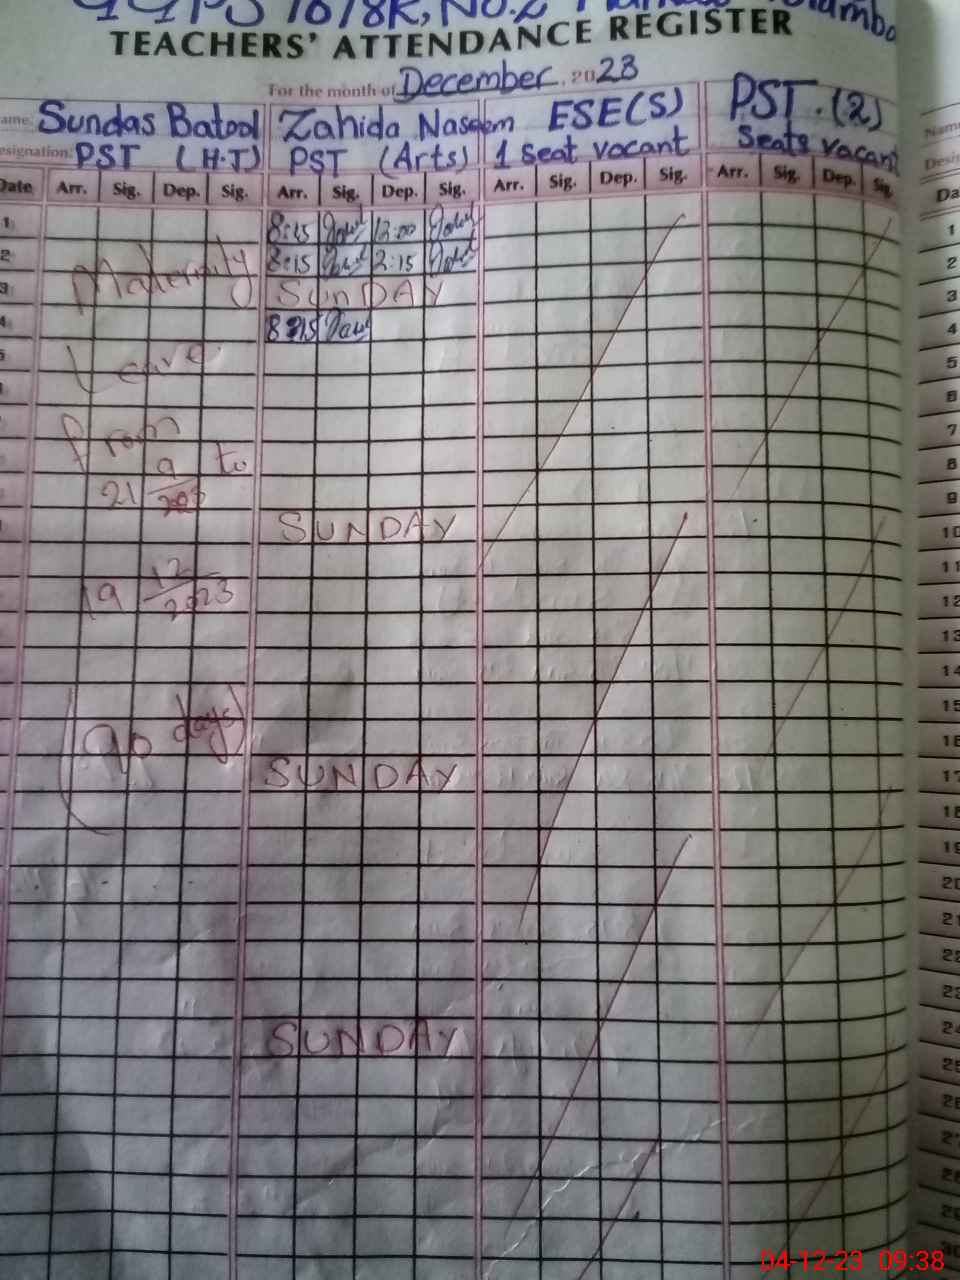 TEACHERS' ATTENDANCE REGISTER
For the month of December, 2023
ame. Sundas Batool Zahida Naseem ESE(S) PST.(2)
esignation. PST (H.T) PST (Arts) 1 seat vacant Seats vacant
Date Arr. Sig. Dep. Sig. Arr. Sig. Dep. Sig. Arr. Sig. Dep. Sig. Arr. Sig. Dep. Sig.
1 8:15 12:00
2 8:15 2:15
Maternity
3 SUNDAY
4 8:15
5
Leave
from
9 to
21 2023
SUNDAY
19 12
2023
(90 days)
SUNDAY
SUNDAY
Name
Desig
Da
1
2
3
4
5
6
7
8
9
10
11
12
13
14
15
16
17
18
19
20
21
22
23
24
25
26
27
28
29
30
04-12-23 09:38